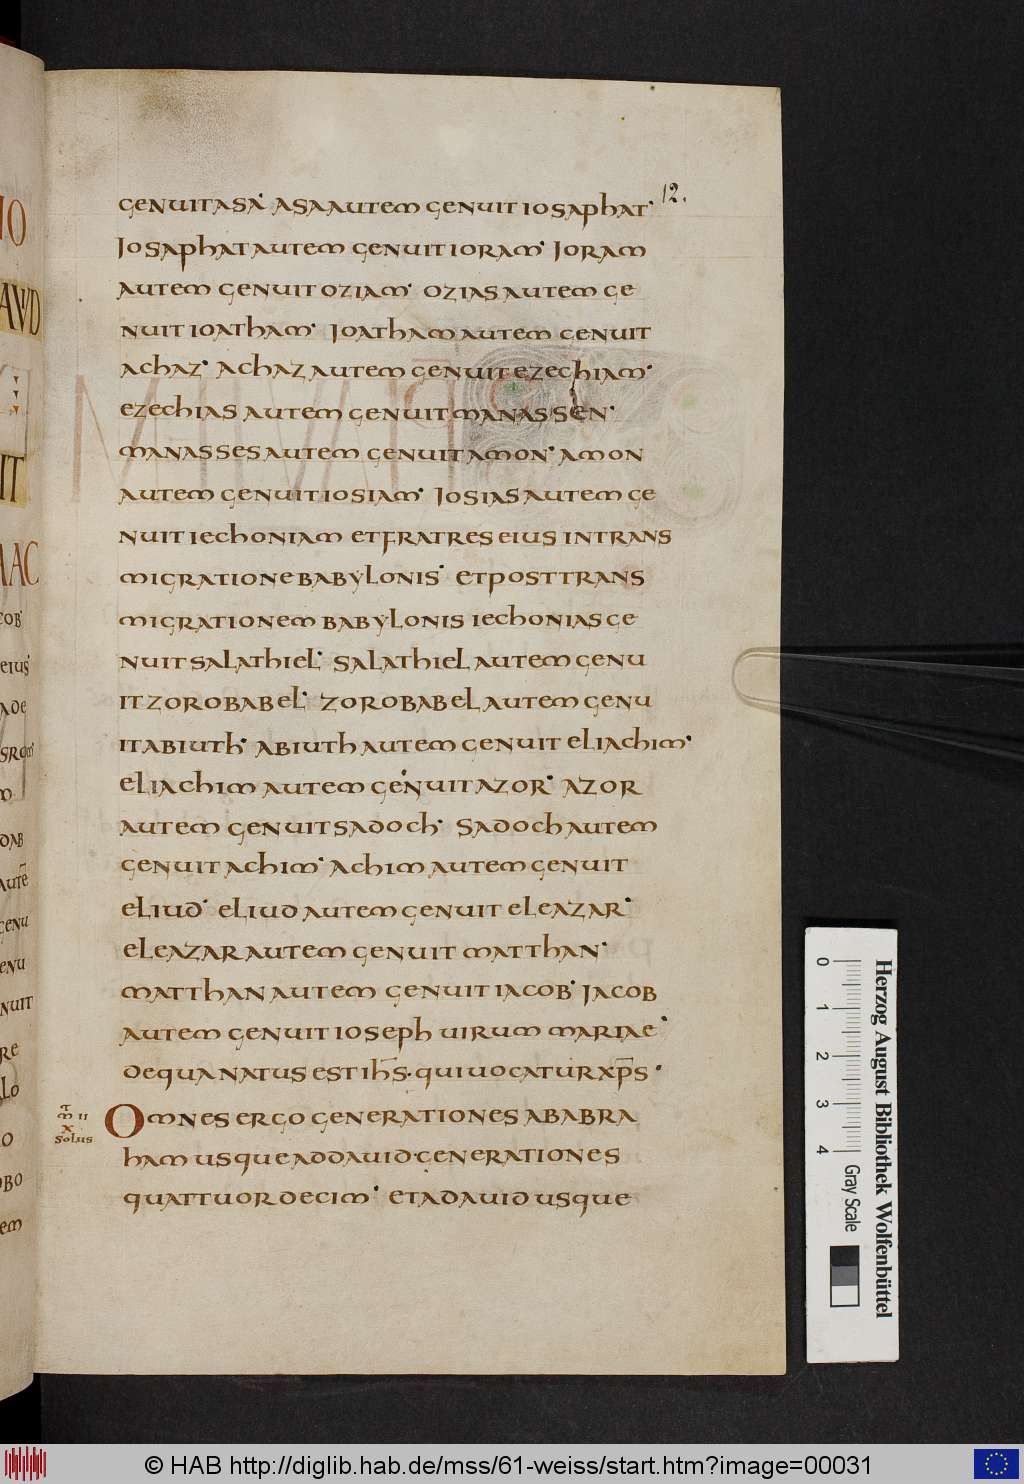 12.
genuit asa· asa autem genuit iosaphat·
Iosaphat autem genuit ioram· Ioram
autem genuit oziam· ozias autem ge
nuit ioatham· Ioatham autem genuit
achaz· achaz autem genuit ezechiam·
ezechias autem genuit manassen·
manasses autem genuit amon· amon
autem genuit iosiam· Iosias autem ge
nuit iechoniam et fratres eius in trans
migratione babylonis· et post trans
migrationem babylonis iechonias ge
nuit salathiel· salathiel autem genu
it zorobabel· zorobabel autem genu
it abiuth· abiuth autem genuit eliachim·
eliachim autem genuit azor· azor
autem genuit sadoch· Sadoch autem
genuit achim· achim autem genuit
eliud· eliud autem genuit eleazar·
eleazar autem genuit matthan·
matthan autem genuit iacob· Iacob
autem genuit ioseph uirum mariae·
de qua natus est ih̅s· qui uocatur xp̅s·
Omnes ergo generationes ab abra
ham usque ad dauid· generationes
quattuordecim· et a dauid usque
m II
X
solus
0 1 2 3 4
Gray Scale
Herzog August Bibliothek Wolfenbüttel
© HAB http://diglib.hab.de/mss/61-weiss/start.htm?image=00031